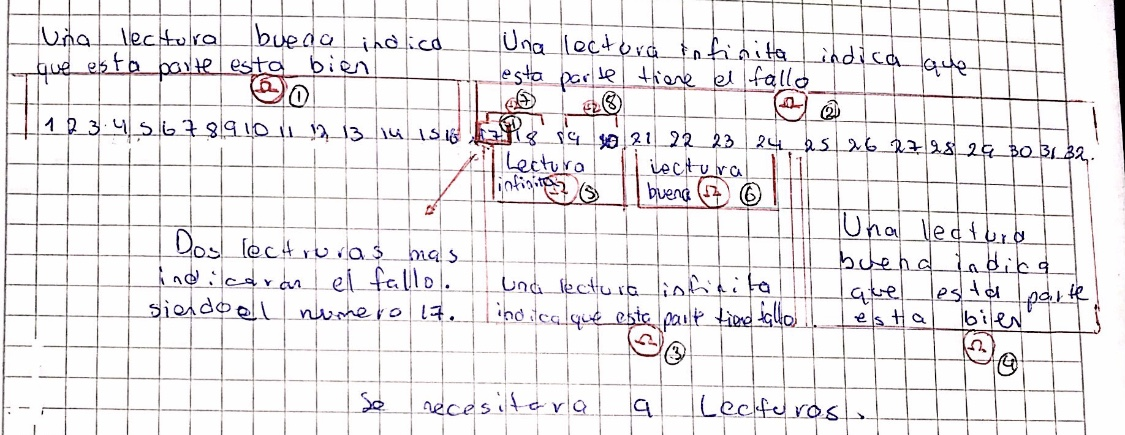 Una lectura buena indica
que esta parte esta bien
Ω ①
Una lectura infinita indica que
esta parte tiene el fallo
Ω ⑦ Ω ⑧ Ω ②
1 2 3 4 5 6 7 8 9 10 11 12 13 14 15 16 17 18 19 20 21 22 23 24 25 26 27 28 29 30 31 32.
Lectura
infinita Ω ⑤
Lectura
buena Ω ⑥
Dos lectruras mas
indicaran el fallo.
siendo el numero 17.
una lectura infinita
indica que esta part tiene fallo.
Ω ③
Una lectura
buena indica
que esta parte
esta bien
Ω ④
Se necesitara 9 Lecturas.